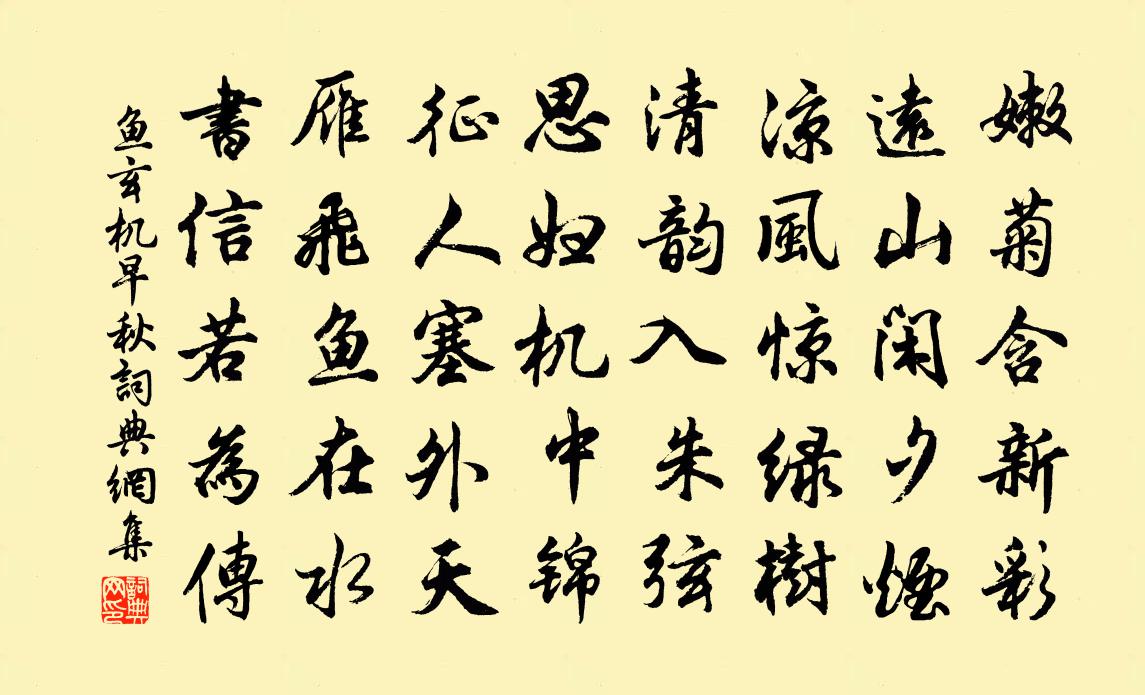 嫩菊含新彩
遠山閑夕煙
涼風惊緑樹
清韵入朱弦
思妇机中锦
征人塞外天
雁飛鱼在水
書信若為傳
鱼玄机早秋詞典網集
詞典网印